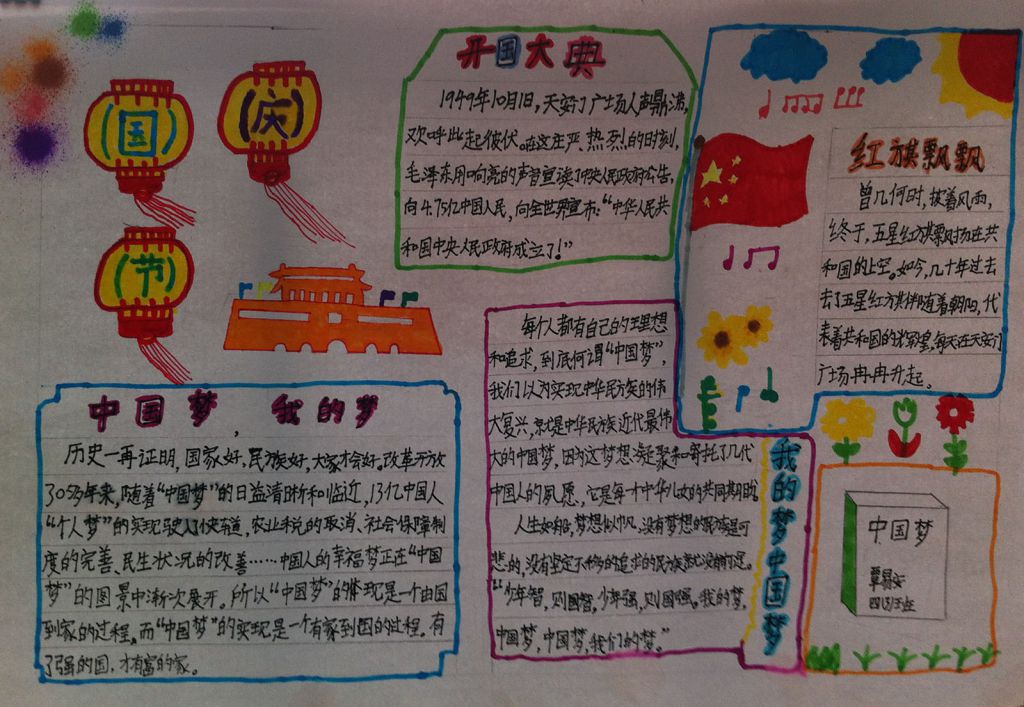 国
庆
节
开国大典
1949年10月1日,天安门广场人声鼎沸,
欢呼此起彼伏。在这庄严、热烈的时刻,
毛泽东用响亮的声音宣读了中央人民政府公告,
向4.75亿中国人民,向全世界宣布:“中华人民共
和国中央人民政府成立了!”
红旗飘飘
曾几何时,披着风雨,
终于,五星红旗飘扬在共
和国的上空。如今,几十年过去
去了五星红旗伴随着朝阳,代
表着共和国的希望,每天在天安门
广场冉冉升起。
中国梦,我的梦
历史一再证明,国家好,民族好,大家才会好,改革开放
30多年来,随着“中国梦”的日益清晰和临近,13亿中国人
“个人梦”的实现驶入了快车道,农业税的取消、社会保障制
度的完善、民生状况的改善……中国人的幸福梦正在“中国
梦”的图景中渐次展开。所以“中国梦”的实现是一个由国
到家的过程。而“中国梦”的实现是一个有家到国的过程。有
了强的国,才有富的家。
每个人都有自己的理想
和追求,到底何谓“中国梦”,
我们以为实现中华民族的伟
大复兴,就是中华民族近代最伟
大的中国梦,因为这梦想凝聚和寄托了几代
中国人的夙愿,它是每个中华儿女的共同期盼
人生如船,梦想似帆。没有梦想的民族是可
悲的,没有坚定不移的追求的民族是没有前途。
“少年智,则国智,少年强,则国强。我的梦,
中国梦,中国梦,我们的梦。”
我的梦中国梦
中国梦
四(5)班